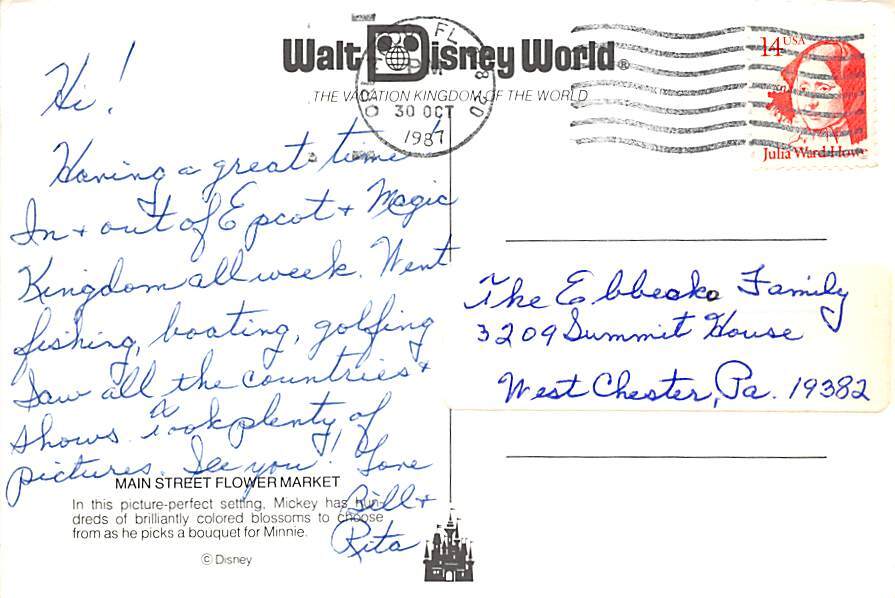 Walt Disney World®
THE VACATION KINGDOM OF THE WORLD
FL
PM
30 OCT
1987
14 USA
Julia Ward Howe
Hi!
Having a great time
In + out of Epcot + Magic
Kingdom all week. Went
fishing, boating, golfing
Saw all the countries +
shows. Took plenty of
pictures. See you! Love
Bill +
Rita
The Ebbecke Family
3209 Summit House
West Chester, Pa. 19382
MAIN STREET FLOWER MARKET
In this picture-perfect setting, Mickey has hun-
dreds of brilliantly colored blossoms to choose
from as he picks a bouquet for Minnie.
© Disney